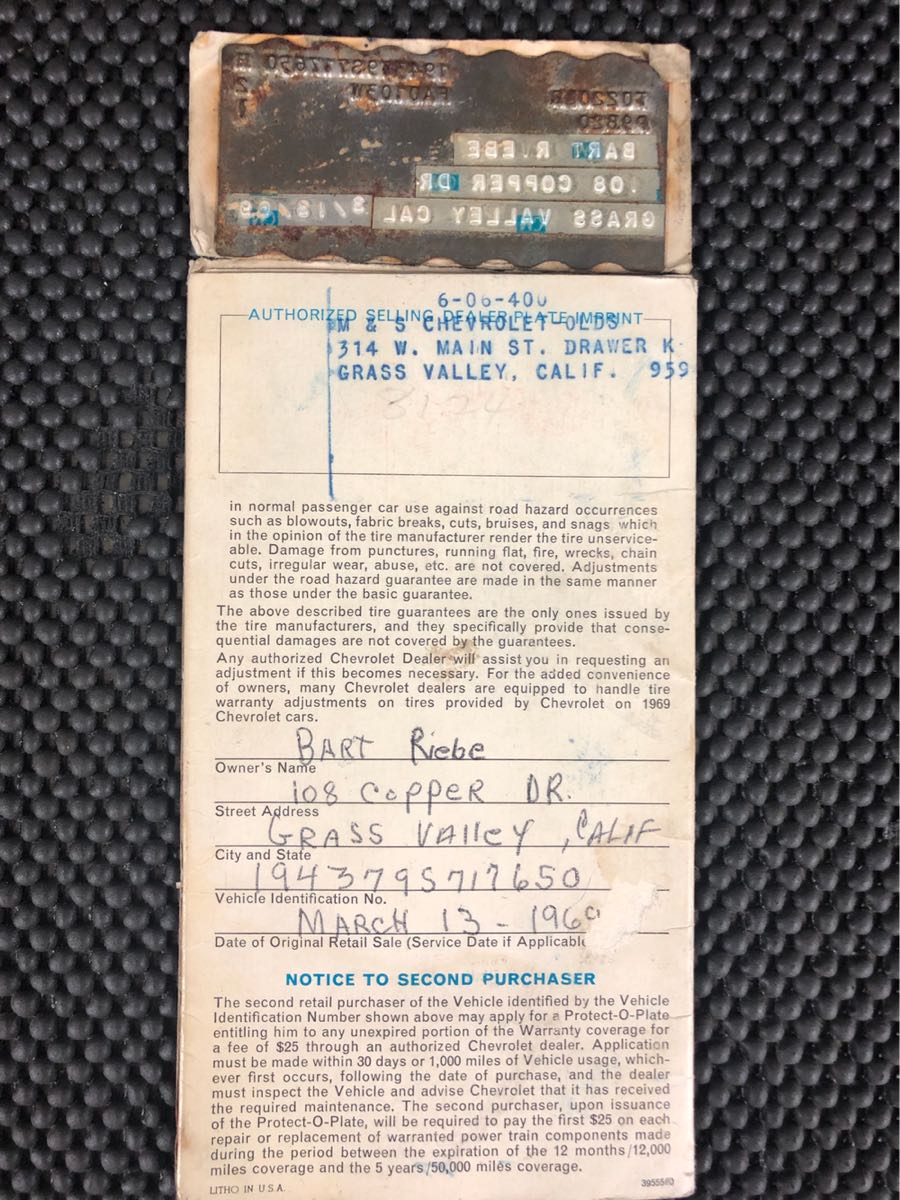 194379S717650
T0220BR
FA0103W
2
P9820
1
BART R EBE
08 COPPER DR
GRASS VALLEY CAL 3/13/69
6-06-400
AUTHORIZED SELLING DEALER PLATE IMPRINT
M & S CHEVROLET-OLDS
314 W. MAIN ST. DRAWER K
GRASS VALLEY, CALIF. 959
3124
in normal passenger car use against road hazard occurrences
such as blowouts, fabric breaks, cuts, bruises, and snags which
in the opinion of the tire manufacturer render the tire unservice-
able. Damage from punctures, running flat, fire, wrecks, chain
cuts, irregular wear, abuse, etc. are not covered. Adjustments
under the road hazard guarantee are made in the same manner
as those under the basic guarantee.
The above described tire guarantees are the only ones issued by
the tire manufacturers, and they specifically provide that conse-
quential damages are not covered by the guarantees.
Any authorized Chevrolet Dealer will assist you in requesting an
adjustment if this becomes necessary. For the added convenience
of owners, many Chevrolet dealers are equipped to handle tire
warranty adjustments on tires provided by Chevrolet on 1969
Chevrolet cars.
BART Riebe
Owner's Name
108 COPPER DR.
Street Address
GRASS VAllEY, CALIF
City and State
194379S717650
Vehicle Identification No.
MARCH 13 - 1969
Date of Original Retail Sale (Service Date if Applicable
NOTICE TO SECOND PURCHASER
The second retail purchaser of the Vehicle identified by the Vehicle
Identification Number shown above may apply for a Protect-O-Plate
entitling him to any unexpired portion of the Warranty coverage for
a fee of $25 through an authorized Chevrolet dealer. Application
must be made within 30 days or 1,000 miles of Vehicle usage, which-
ever first occurs, following the date of purchase, and the dealer
must inspect the Vehicle and advise Chevrolet that it has received
the required maintenance. The second purchaser, upon issuance
of the Protect-O-Plate, will be required to pay the first $25 on each
repair or replacement of warranted power train components made
during the period between the expiration of the 12 months/12,000
miles coverage and the 5 years/50,000 miles coverage.
LITHO IN U.S.A.
3955580